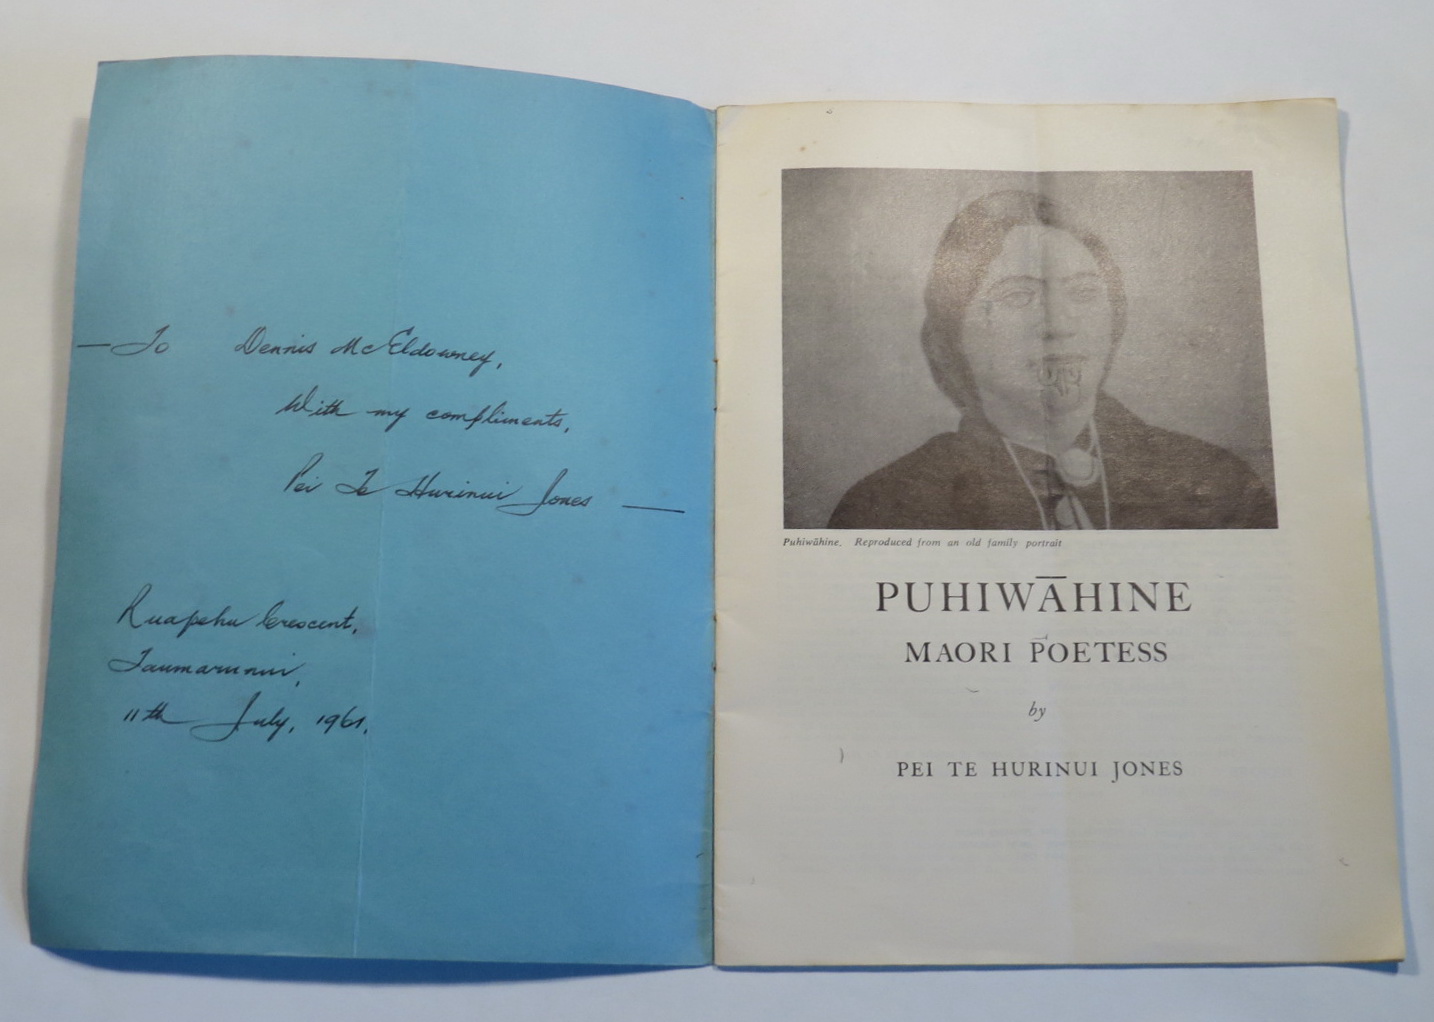 — To Dennis McEldowney,
With my compliments,
Pei Te Hurinui Jones —
Ruapehu Crescent,
Taumarunui,
11th July, 1961.
Puhiwāhine. Reproduced from an old family portrait
PUHIWĀHINE
MAORI POETESS
by
PEI TE HURINUI JONES